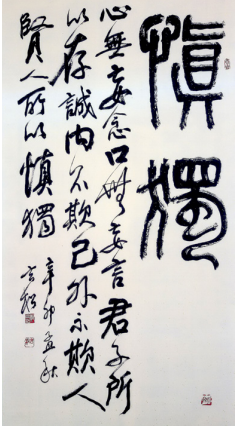 慎獨
心無妄念口無妄言君子所
以存誠内不欺己外不欺人
賢人所以慎獨
辛卯孟秋